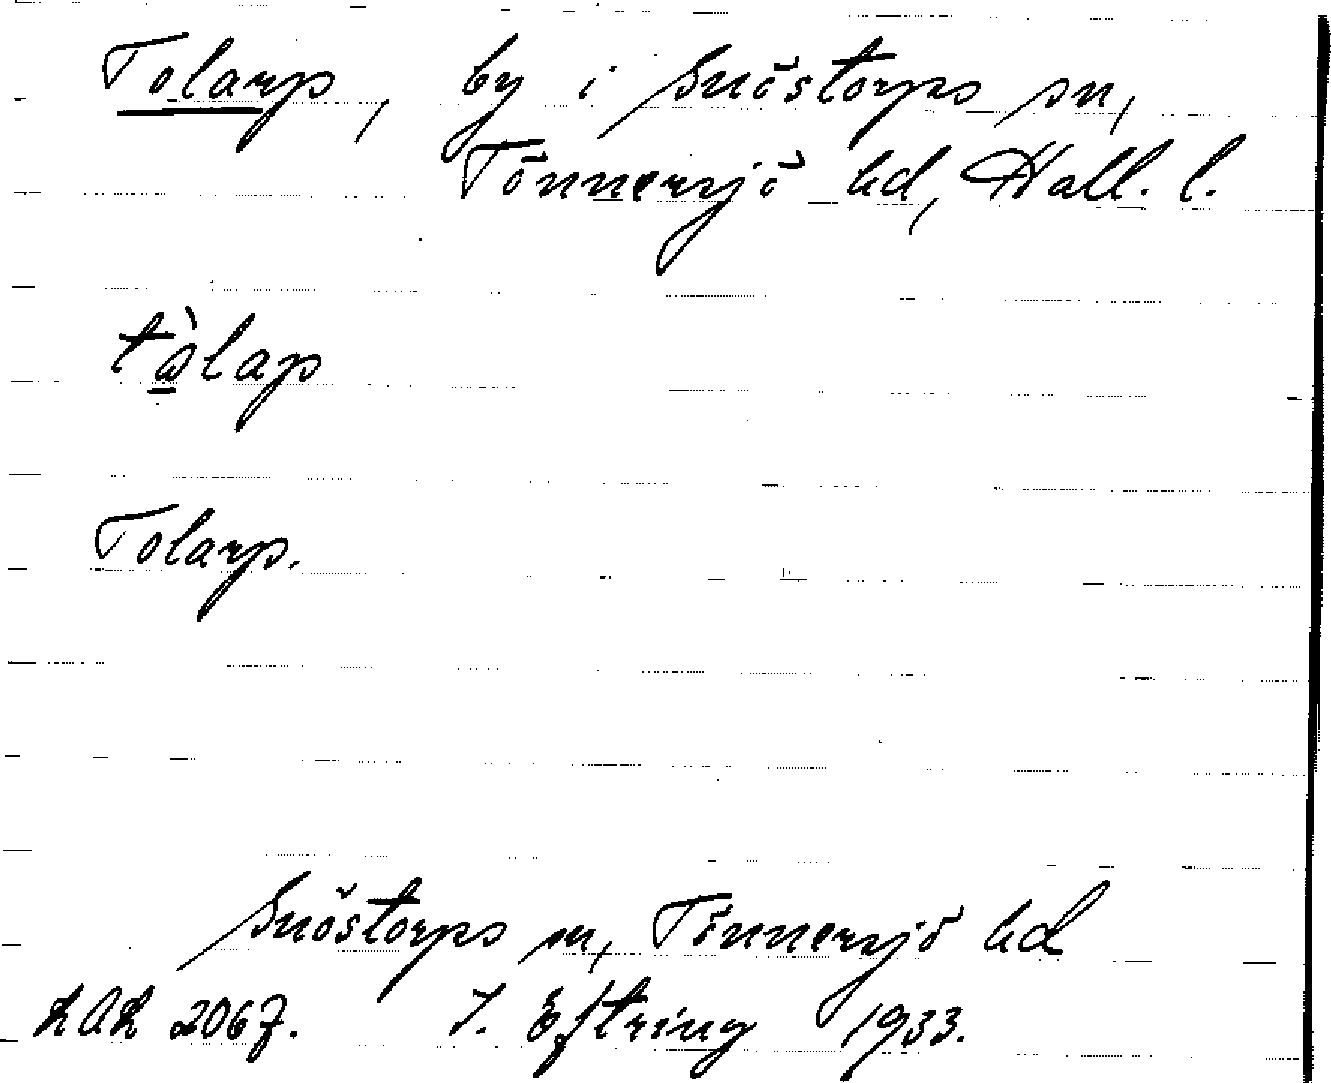 Tolarp, by i Snöstorps sn,
Tönnersjö hd, Hall. l.
tòlap
Tolarp.
Snöstorps sn, Tönnersjö hd
LAL 2067. J. Eftring 1933.